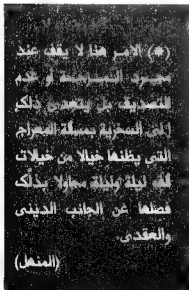 (*) الأمر هنا لا يقف عند
مجرد السخرية أو عدم
التصديق بل يتعدى ذلك
إلى السخرية بمسألة المعراج
التي يظنها خيالا من خيالات
ألف ليلة وليلة محاولا بذلك
فصلها عن الجانب الديني
والعقدي.
(المنهل)